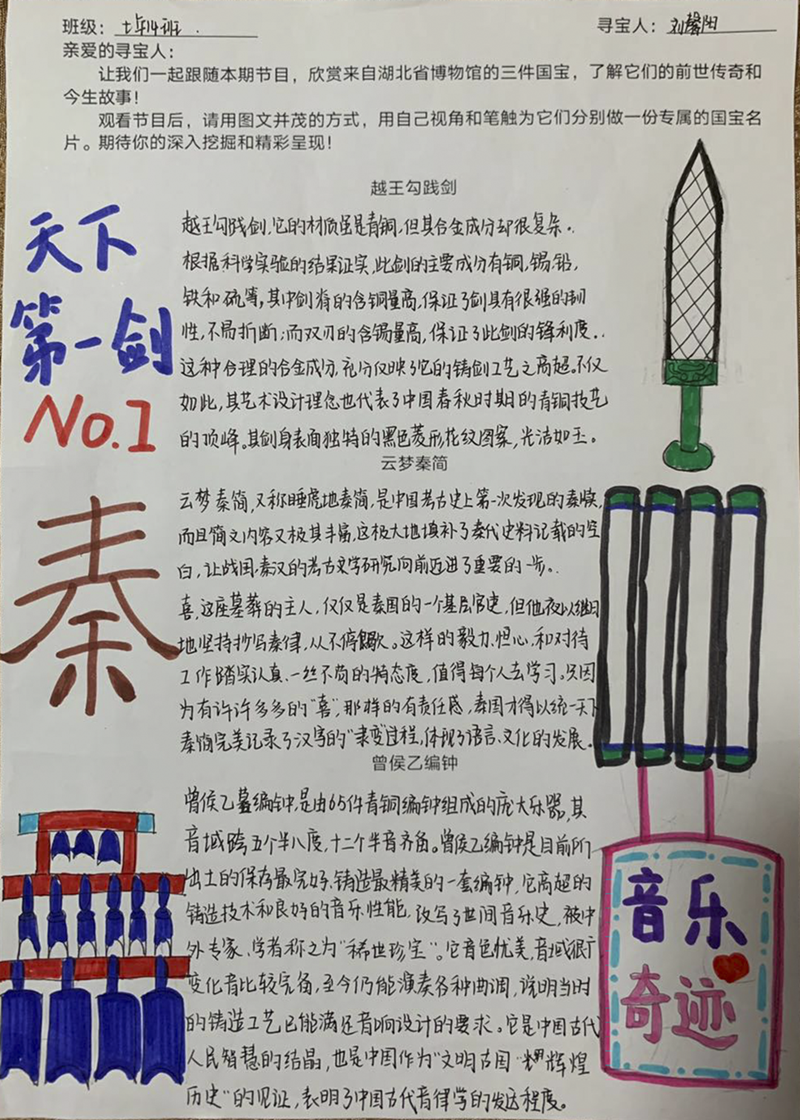 班级：七年14班. 寻宝人：刘馨阳
亲爱的寻宝人：
让我们一起跟随本期节目，欣赏来自湖北省博物馆的三件国宝，了解它们的前世传奇和
今生故事！
观看节目后，请用图文并茂的方式，用自己视角和笔触为它们分别做一份专属的国宝名
片。期待你的深入挖掘和精彩呈现！
越王勾践剑
天下
第一剑
No.1
越王勾践剑，它的材质虽是青铜，但其合金成分却很复杂。
根据科学实验的结果证实，此剑的主要成分有铜，锡，铅，
铁和硫等，其中剑脊的含铜量高，保证了剑具有很强的韧
性，不易折断；而双刃的含锡量高，保证了此剑的锋利度。
这种合理的合金成分，充分反映了它的铸剑工艺之高超。不仅
如此，其艺术设计理念也代表了中国春秋时期的青铜技艺
的顶峰。其剑身表面独特的黑色菱形花纹图案，光洁如玉。
云梦秦简
秦
云梦秦简，又称睡虎地秦简，是中国考古史上第一次发现的秦牍，
而且简文内容又极其丰富，这极大地填补了秦代史料记载的空
白，让战国、秦汉的考古文学研究向前迈进了重要的一步。
喜，这座墓葬的主人，仅仅是秦国的一个基层官吏，但他夜以继日
地坚持抄写秦律，从不停歇。这样的毅力、恒心，和对待
工作踏实认真、一丝不苟的态度，值得每个人去学习。只因
为有许许多多的“喜”，那样的有责任感，秦国才得以统一天下
秦简完美记录了汉字的“隶变”过程，体现了语言、文化的发展。
曾侯乙编钟
曾侯乙墓编钟，是由65件青铜编钟组成的庞大乐器，其
音域跨五个半八度，十二个半音齐备。曾侯乙编钟是目前所
出土的保存最完好、铸造最精美的一套编钟，它高超的
铸造技术和良好的音乐性能，改写了世间音乐史，被中
外专家、学者称之为“稀世珍宝”。它音色优美，音域很广
变化音比较完备，至今仍能演奏各种曲调，说明当时
的铸造工艺已能满足音响设计的要求。它是中国古代
人民智慧的结晶，也是中国作为“文明古国 辉煌
历史”的见证，表明了中国古代音律学的发达程度。
音乐
奇迹